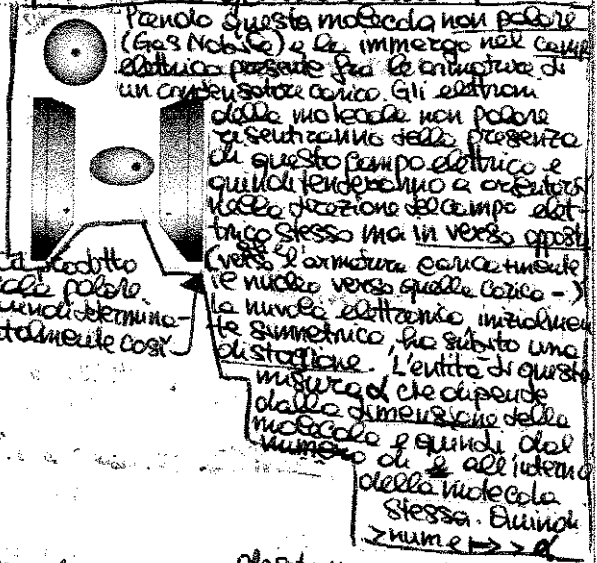 Prendo questa molecola non polare
(Gas Nobile) e la immergo nel campo
elettrico presente fra le armature di
un condensatore carico. Gli elettroni
della molecola non polare
risentiranno della presenza
di questo campo elettrico e
quindi tenderanno a orientarsi
nella direzione del campo elet-
trico stesso ma in verso opposto
(verso l'armatura carica +mente
e nucleo verso quella carica -)
la nuvola elettronica inizialmen
te simmetrica, ha subito una
distorsione. L'entità di questa
misura α che dipende
dalla dimensione della
molecola e quindi dal
numero di e all'interno
della molecola
stessa. Quindi
> num e ↦ > α
prodotto
polare.
quindi determina-
talmente così